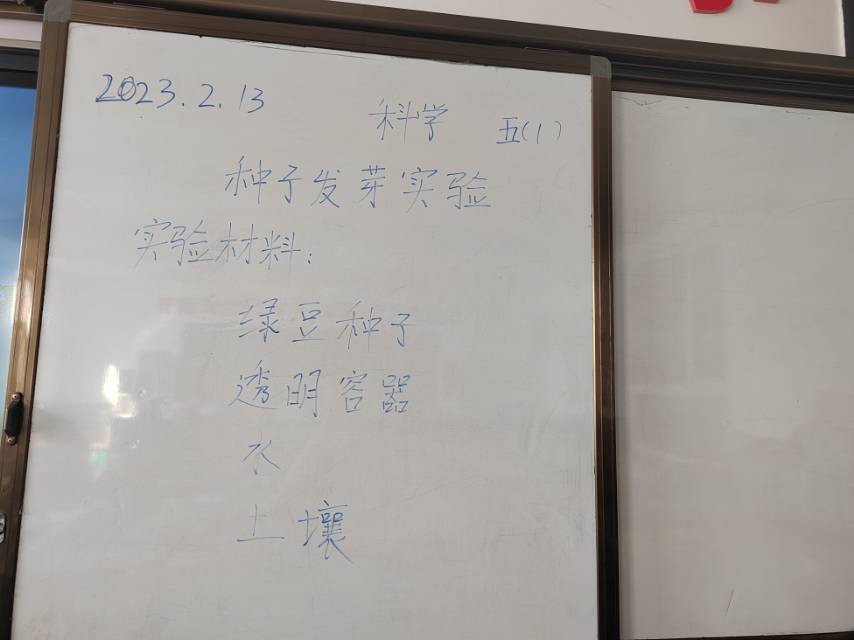 2023.2.13
科学 五(1)
种子发芽实验
实验材料:
绿豆种子
透明容器
水
土壤